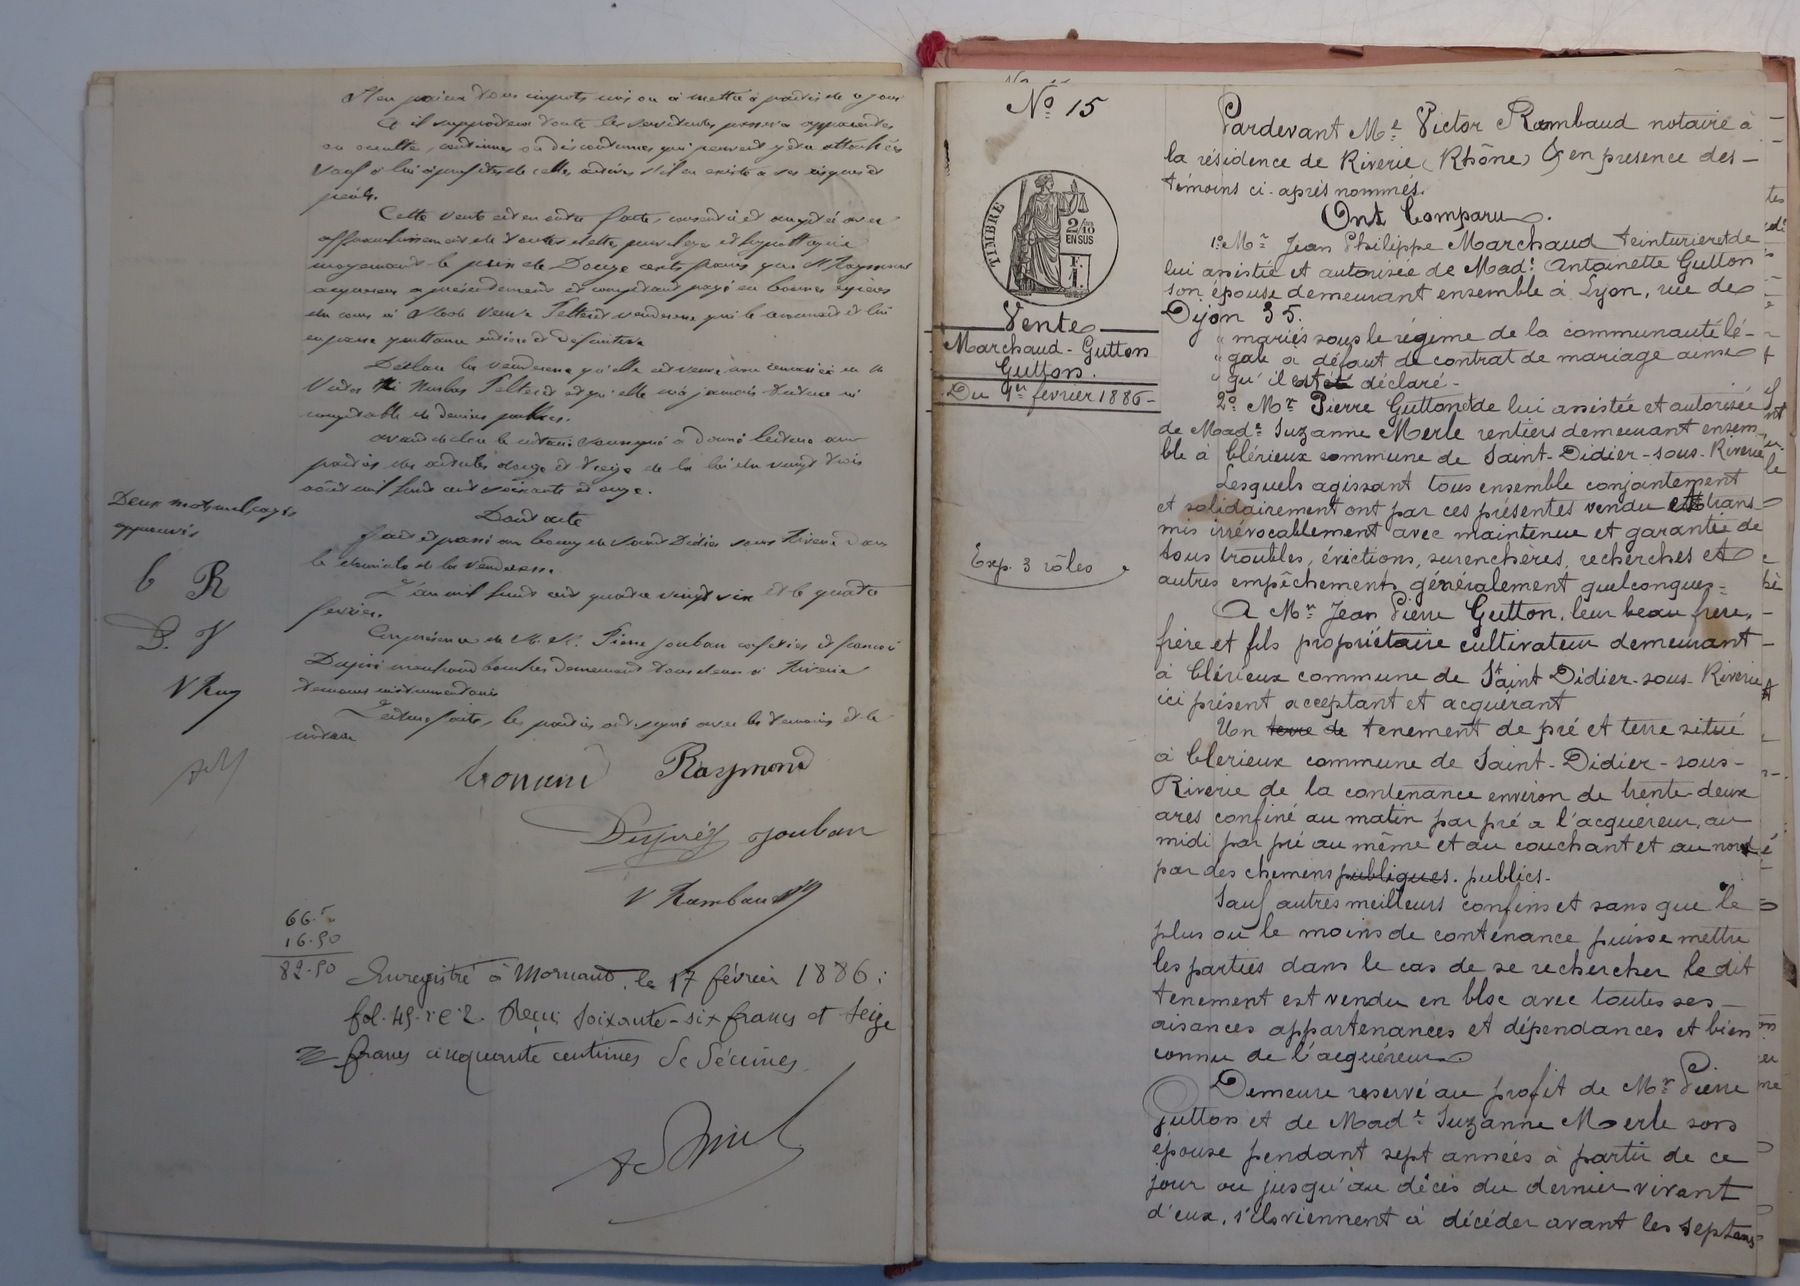 et il supportera toutes les servitudes passives apparentes
ou occultes, continues ou discontinues qui peuvent y être attachées
sauf à lui à profiter de celles actives s'il en existe à ses risques et
périls.
Cette vente est en outre faite, consentie et acceptée avec
affranchissement de toutes dettes privilèges et hypothèques
moyennant le prix de Douze cents francs que M Raymond
acquéreur a présentement et comptant payé en bonnes espèces
du cours à Made veuve
en passe quittance entière et définitive
Déclare la venderesse qu'elle est veuve non remariée en
comptable de deniers publics.
avant de clore le notaire soussigné a donné lecture aux
parties des articles douze et treize de la loi du vingt trois
août mil huit cent soixante et onze.
Dont acte
fait et passé au bourg de Saint Didier sous Riverie dans
le domicile de la venderesse.
L'an mil huit cent quatre vingt six et le quatre
février.
En présence de M. M. Pierre Jouban et françois
Dupré marchand boucher demeurant tous deux à Riverie
témoins instrumentaires
Lecture faite, les parties ont signé avec les témoins et le
notaire
Deux mots nuls rayés
approuvés
R
D. J
V Ray
Raymond
Jouban
V Rambaud
66.
16.50
82.50
Enregistré à Mornant, le 17 février 1886:
fol. 45. r c 2. Reçu soixante-six francs et seize
francs cinquante centimes de Décimes
No 15
TIMBRE
2/10
EN SUS
F.
1.
Vente
Marchaud - Gutton
Gutton.
Du 9er février 1886-
Exp. 3 rôles
Pardevant Me Victor Rambaud notaire à
la résidence de Riverie (Rhône) & en presence des
témoins ci-après nommés.
Ont Comparu.
1º. Mr Jean Philippe Marchaud teinturier et de
lui assistée et autorisée de Made Antoinette Gutton
son épouse demeurant ensemble à Lyon, rue de
Dijon 35.
" mariés sous le régime de la communauté lé-
" gale à défaut de contrat de mariage ainsi
" qu'il est déclaré -
2º Mr Pierre Gutton et de lui assistée et autorisée
de Made Suzanne Merle rentiers demeurant ensem-
ble à Clérieux commune de Saint-Didier-sous-Riverie
Lesquels agissant tous ensemble conjointement
et solidairement ont par ces présentes vendu et trans-
mis irrévocablement avec maintenue et garantie de
tous troubles, évictions, surenchères, recherches et
autres empêchements généralement quelconques =
A Mr Jean Pierre Gutton, leur beau frère,
frère et fils propriétaire cultivateur demeurant
à Clérieux commune de Saint Didier-sous-Riverie
ici présent acceptant et acquérant
Un terre de tenement de pré et terre situé
à Clerieux commune de Saint-Didier-sous-
Riverie de la contenance environ de trente-deux
ares confiné au matin par pré a l'acquéreur, au
midi par pré au même et au couchant et au nord
par des chemins publiques. publics.
Sauf autres meilleurs confins et sans que le
plus ou le moins de contenance puisse mettre
les parties dans le cas de se rechercher le dit
tenement est vendu en bloc avec toutes ses
aisances appartenances et dépendances et bien
connu de l'acquéreur.
Demeure reservé au profit de Mr Pierre
Gutton et de Made Suzanne Merle son
épouse pendant sept années à partir de ce
jour ou jusqu'au décès du dernier vivant
d'eux, s'ils viennent à décéder avant les sept ans